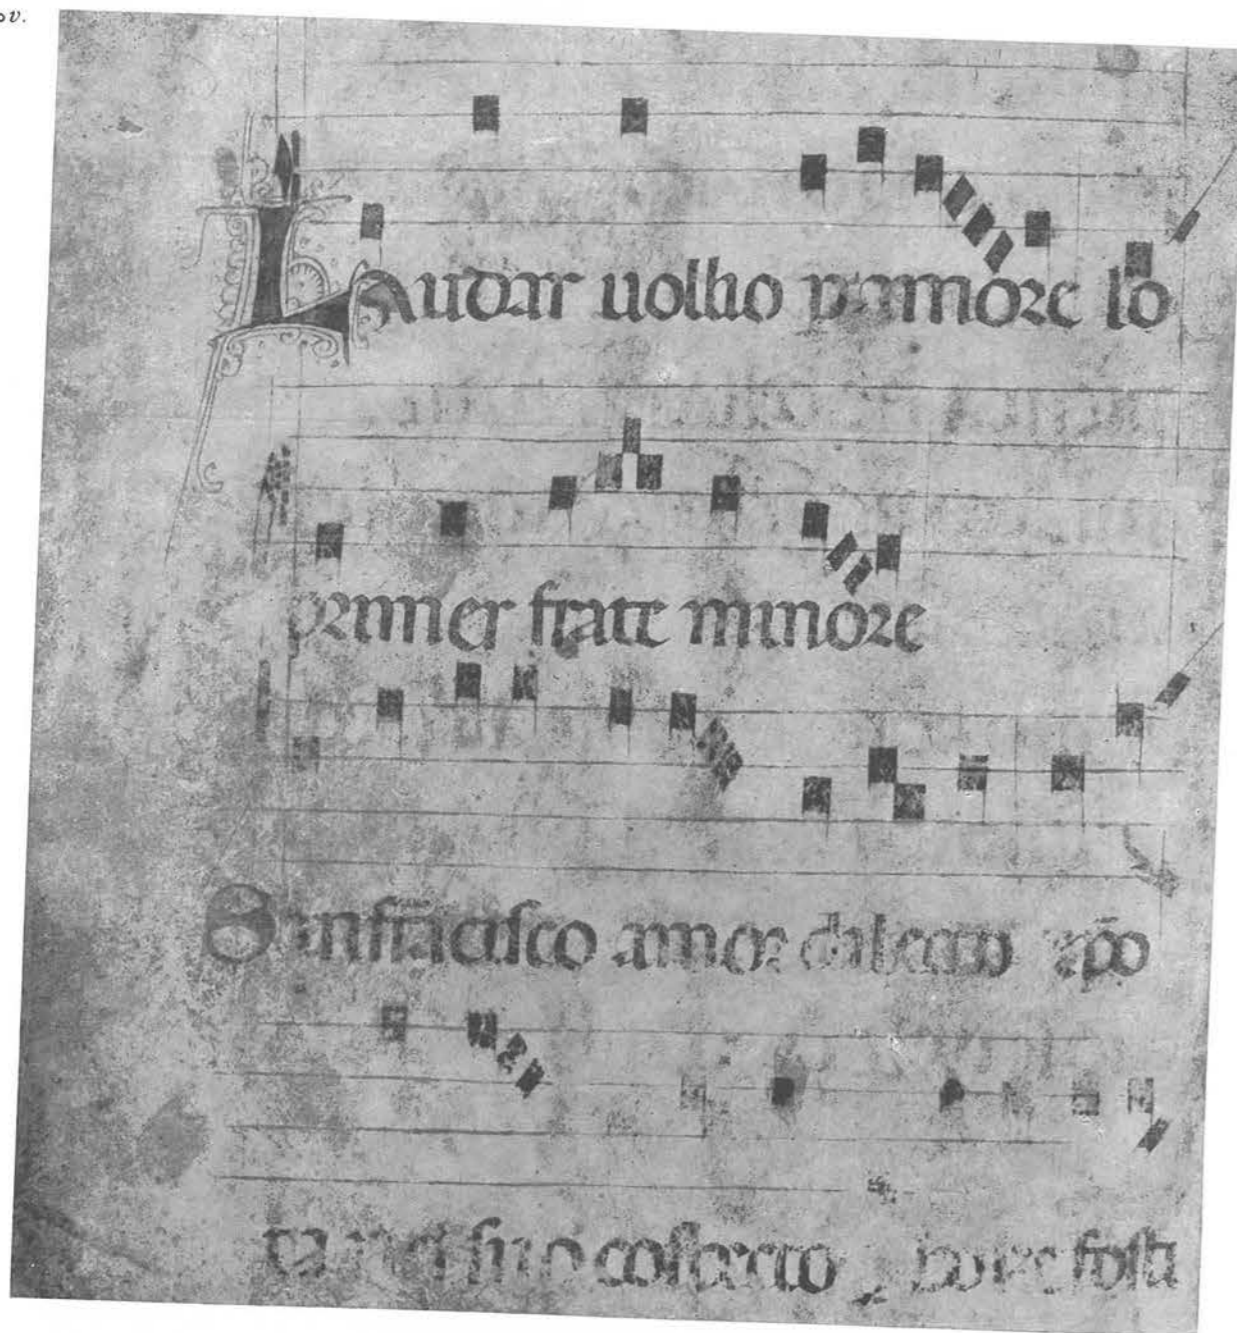 v.
Laudar uollio p amore lo
primer frate minore
San frācisco amor dilecto xpō
nel suo cospecto fosti